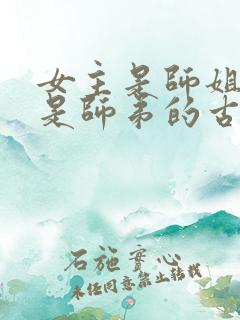 女主是師姐
是師弟的古
石施實心
未经同意禁止转载